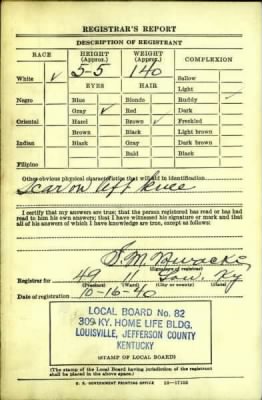 REGISTRAR'S REPORT
DESCRIPTION OF REGISTRANT
RACE HEIGHT (Approx.) WEIGHT (Approx.) COMPLEXION
White ✓ 5-5 140 Sallow
Light
EYES HAIR
Negro Blue Blonde Ruddy ✓
Gray ✓ Red Dark
Oriental Hazel Brown ✓ Freckled
Brown Black Light brown
Indian Black Gray Dark brown
Bald Black
Filipino
Other obvious physical characteristics that will aid in identification
Scar on left knee
I certify that my answers are true; that the person registered has read or has had
read to him his own answers; that I have witnessed his signature or mark and that
all of his answers of which I have knowledge are true, except as follows:
S. M.
(Signature of registrar)
Registrar for 49 11 Lou. Ky
(Precinct) (Ward) (City or county) (State)
Date of registration 10-16-40
LOCAL BOARD No. 82
309 KY. HOME LIFE BLDG.
LOUISVILLE, JEFFERSON COUNTY
KENTUCKY
(STAMP OF LOCAL BOARD)
(The stamp of the Local Board having jurisdiction of the registrant
shall be placed in the above space.)
U. S. GOVERNMENT PRINTING OFFICE